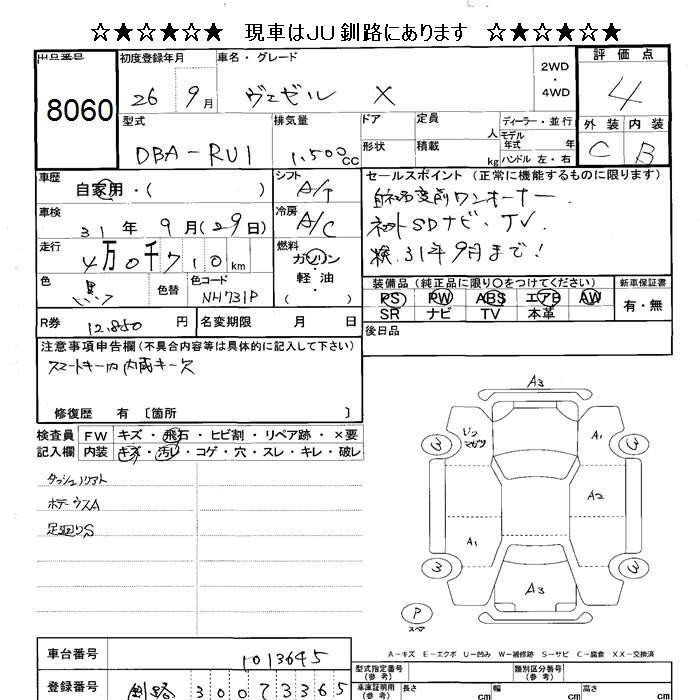 ☆★☆★☆★☆ 現車はJU釧路にあります ☆★☆★☆★☆
出品番号 初度登録年月 車名・グレード 2WD ・ 4WD 評価点
8060 26 9月 ヴェゼル X 4
型式 排気量 ドア 定員 人 ディーラー・並行 外装 内装
モデル年式 年
DBA-RU1 1,500cc 形状 積載 kg ハンドル 左・右 C B
車歴 自家用・( ) シフト A/T セールスポイント (正常に機能するものに限ります)
車検 31年9月(29日) 冷房 A/C
走行 4万0千710km 燃料 ガソリン 軽・油 ( )
検31年9月まで!
色 黒 色替 色コード NH731P
装備品(純正品に限り○をつけてください) 新車保証書
PS PW ABS エアB AW 有・無
SR ナビ TV 本革
R券 12,850円 名変期限 月 日 後日品
注意事項申告欄(不具合内容等は具体的に記入して下さい)
スマートキー内内蔵キー欠
修復歴 有 〔箇所 〕
検査員 FW キズ・飛石・ヒビ割・リペア跡・×要
記入欄 内装 キズ・汚れ・コゲ・穴・スレ・キレ・破レ
足廻りS
A3
A1
A2
A1
A3
P
A-キズ E-エクボ U-凹み W-補修跡 S-サビ C-腐食 XX-交換済
車台番号 1013645
型式指定番号(参考) 類別区分番号(参考)
登録番号 釧路 300 て 3365
車庫証明用(参考) 長さ cm 幅 cm 高さ cm